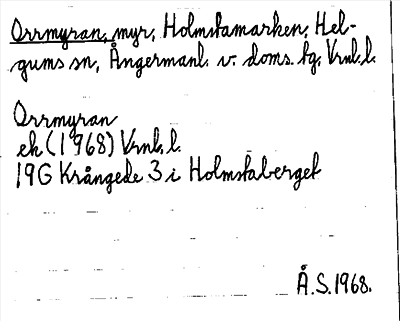 Orrmyran, myr, Holmstamarken, Hel-
gums sn, Ångermanl. v. doms. tg. Vrnl.l.
Orrmyran
ek (1968) Vrnl.l.
19G Krångede 3 i Holmstaberget
Å.S. 1968.